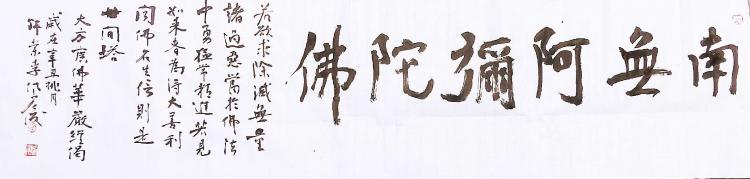 南無阿彌陀佛
若欲求除滅無量
諸過惡當於佛法
中勇猛常精進若見
如來者為得大善利
聞佛名生信則是
世間塔
大方廣佛華嚴經偈
歲在辛丑桃月